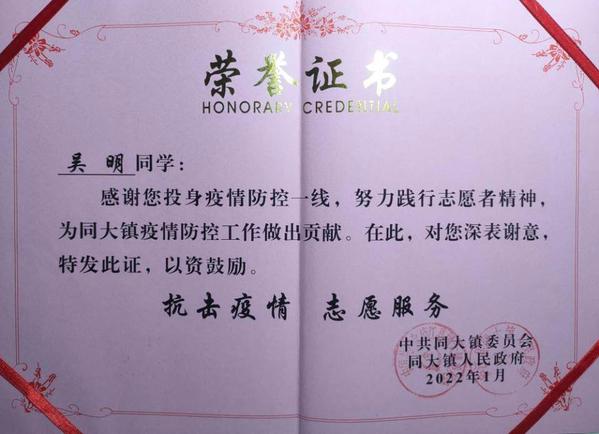 荣誉证书
HONORARY CREDENTIAL
吴 明 同学：
感谢您投身疫情防控一线，努力践行志愿者精神，
为同大镇疫情防控工作做出贡献。在此，对您深表谢意，
特发此证，以资鼓励。
抗击疫情 志愿服务
中共同大镇委员会
同大镇人民政府
2022年1月